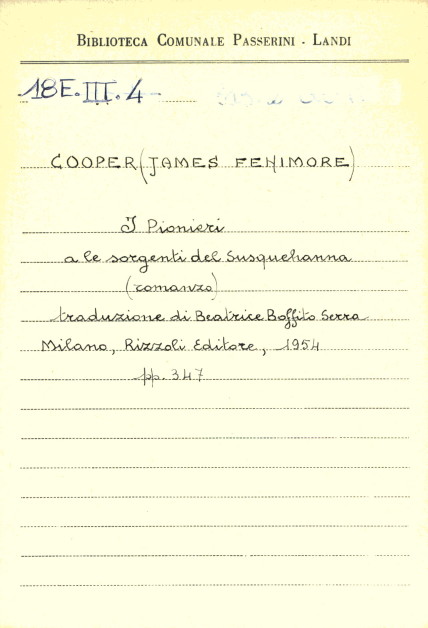 BIBLIOTECA COMUNALE PASSERINI - LANDI
18E.III.4-
COOPER (JAMES FENIMORE)
I Pionieri
a le sorgenti del Susquehanna
(romanzo)
traduzione di Beatrice Boffito Serra
Milano, Rizzoli Editore, 1954
pp. 347